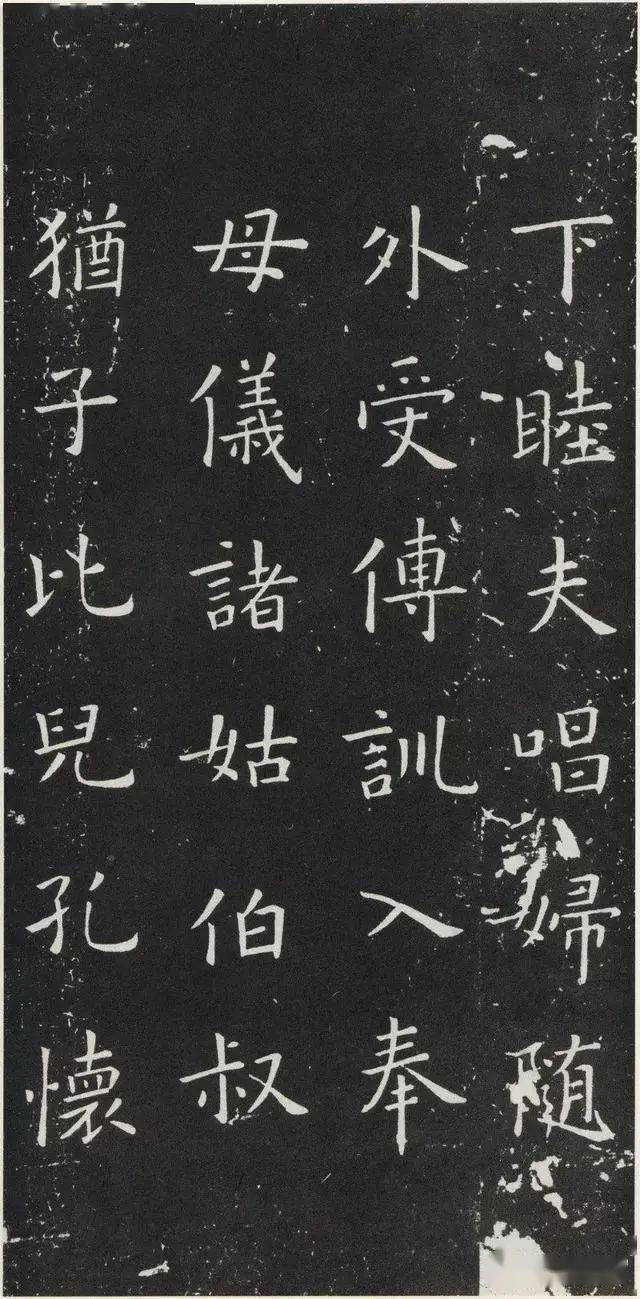 下睦夫唱婦隨
外受傅訓入奉
母儀諸姑伯叔
猶子比兒孔懷